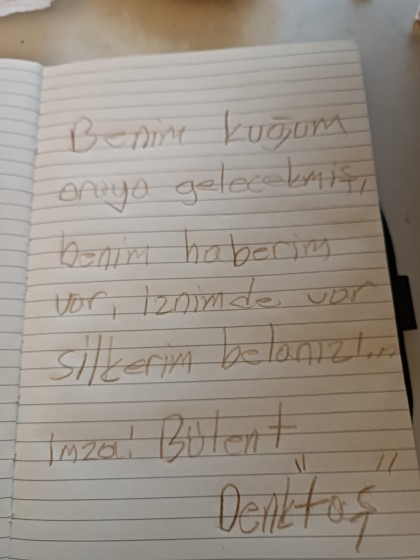 Benim kuğum
oraya gelecekmiş,
benim haberim
var, iznimde var
silkerim belanızı...
imza: Bülent
"Denktaş"